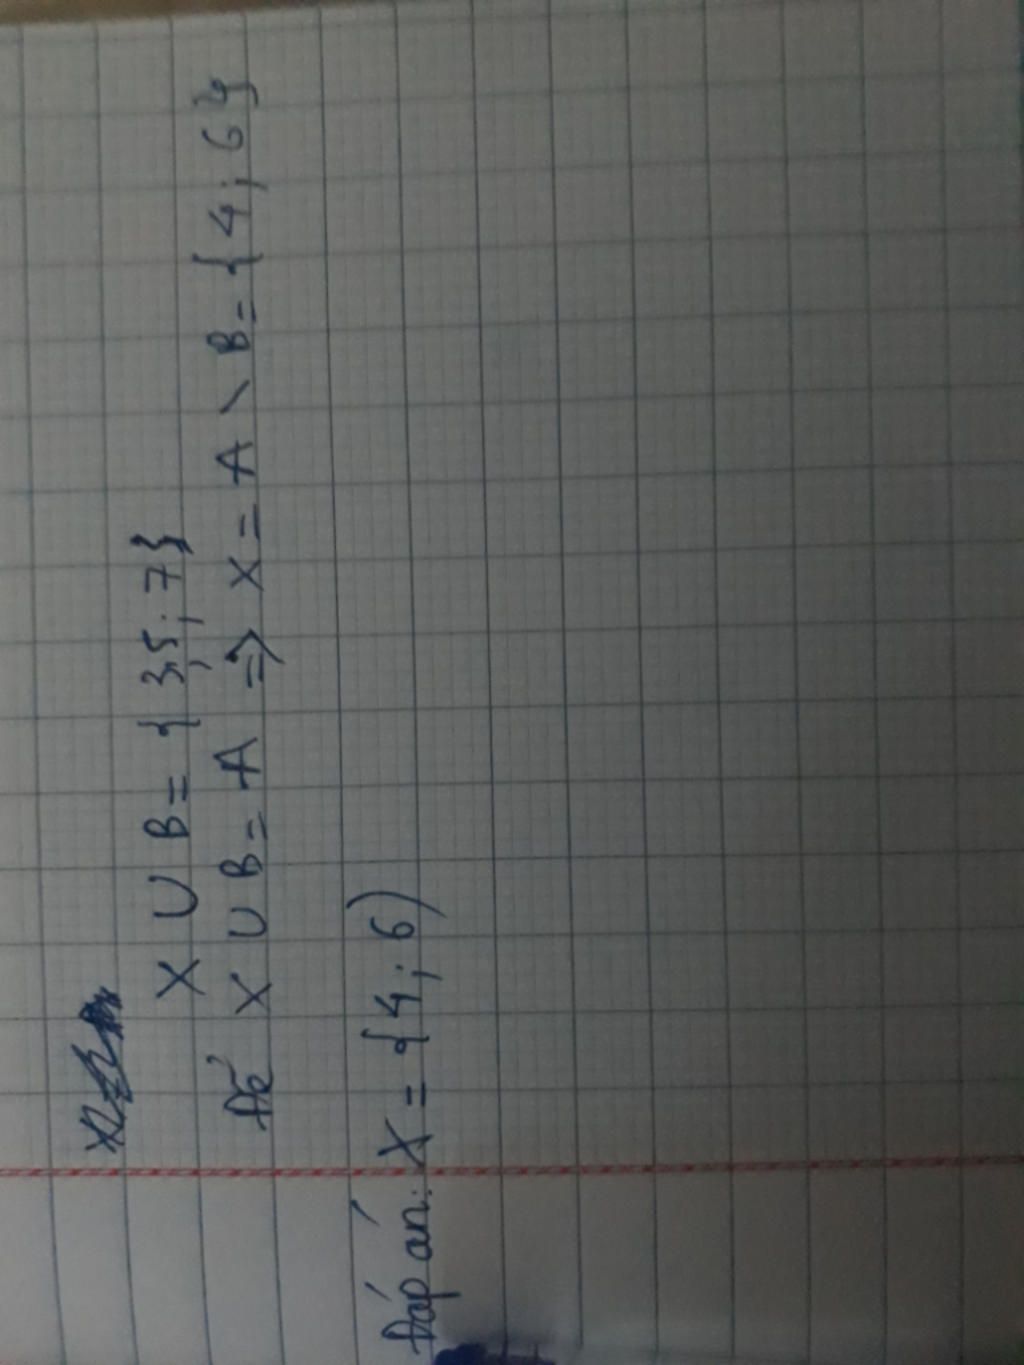 X ∪ B = { 3; 5; 7}
Để X ∪ B = A => X = A \ B = { 4; 6}
Đáp án: X = { 4; 6)